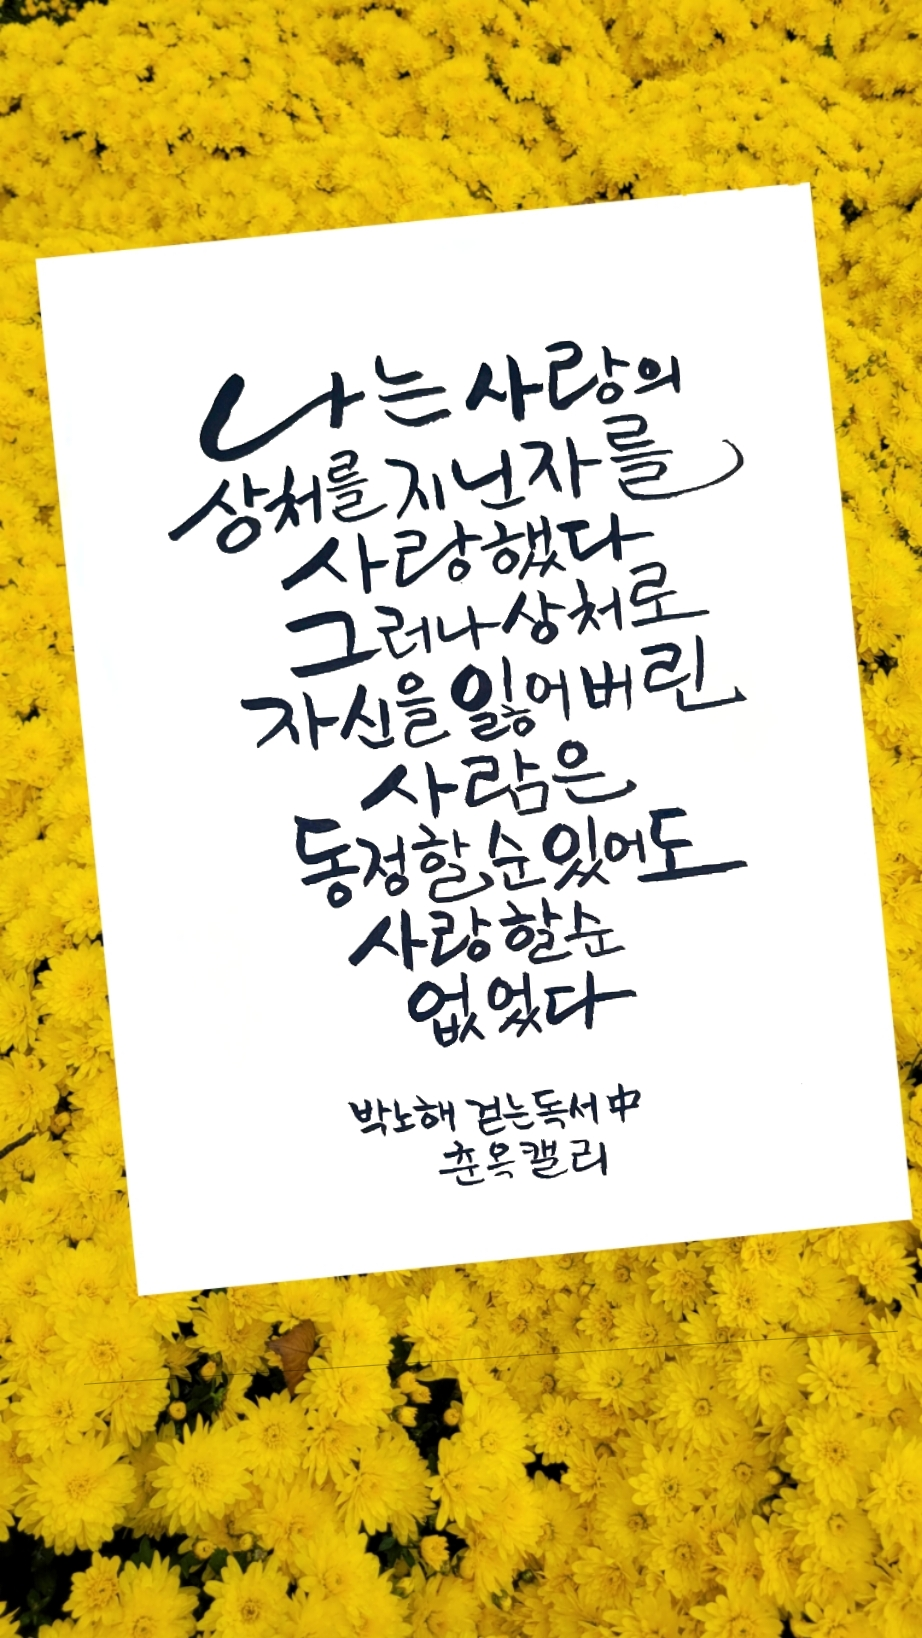 나는 사랑의
상처를 지닌 자를
사랑했다
그러나 상처로
자신을 잃어버린
사람은
동정할 순 있어도
사랑할 순
없었다
박노해 걷는 독서 中
춘옥캘리